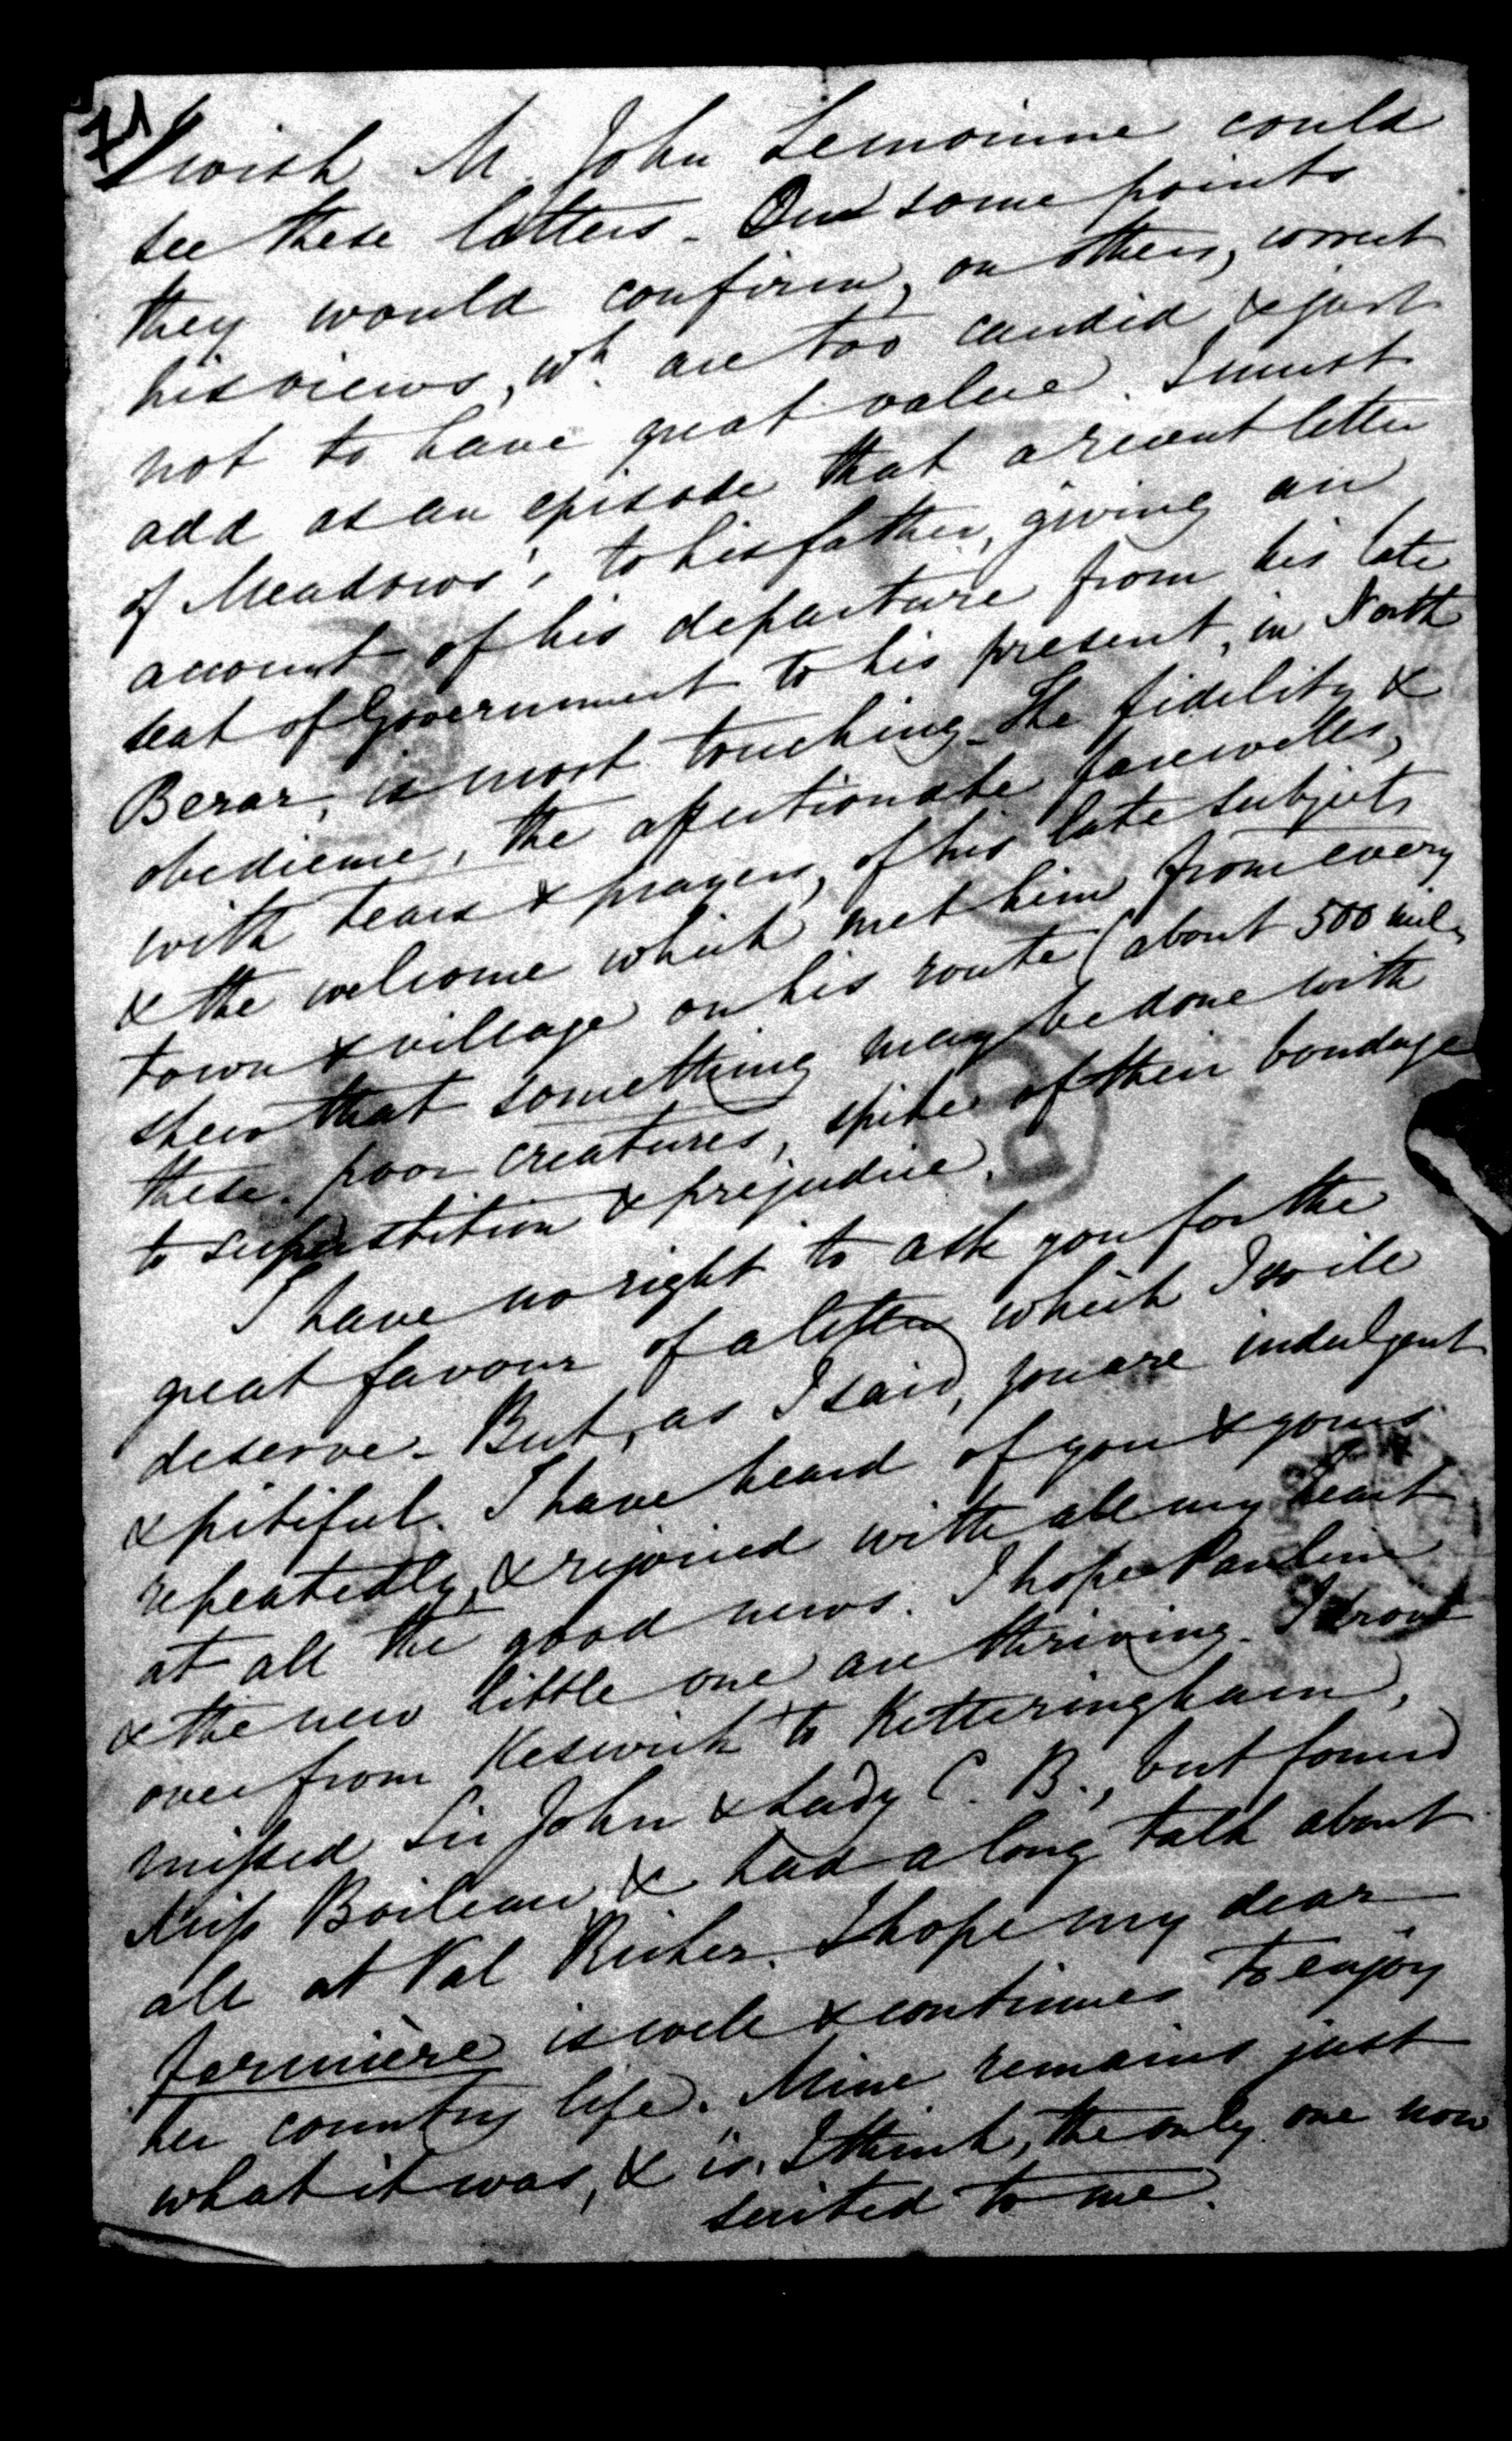 71
I wish M. John Lemoinne could
see these letters - On some points
they would confirm, on others, correct
his views, wh. are too candid & just
not to have great value. I must
add as an episode that a recent letter
of Meadows', to his father, giving an
account of his departure from his late
seat of Government to his present, in North
Berar, is most touching. The fidelity &
obedience, the affectionate farewells,
with tears & prayers, of his late subjects
& the welcome which met him from every
town & village on his route (about 500 miles
shew that something may be done with
these poor creatures, spite of their bondage
to superstition & prejudice.
I have no right to ask you for the
great favour of a letter which I so ill
deserve - But, as I said, you are indulgent
& pitiful. I have heard of you & yours
repeatedly, & rejoiced with all my heart
at all the good news. I hope Pauline
& the new little one are thriving - I drove
over from Keswick to Ketteringham,
missed Sir John & Lady C. B., but found
Miss Boileau, & had a long talk about
all at Val Richer. I hope my dear
fermière is well & continues to enjoy
her country life. Mine remains just
what it was, & is, I think, the only one now
suited to me.